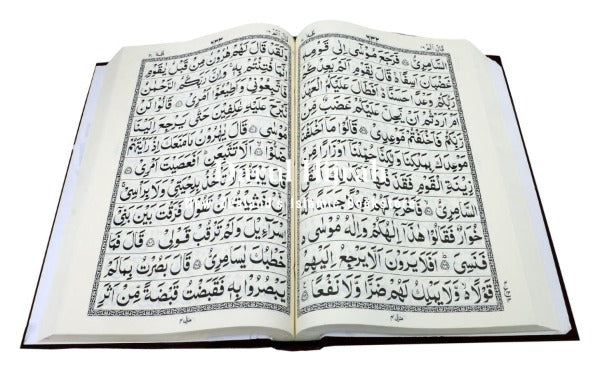 السَّامِرِيُّ ۝ فَرَجَعَ مُوْسٰٓى اِلٰى قَوْمِهٖ
غَضْبَانَ اَسِفًا ۚ قَالَ يٰقَوْمِ اَلَمْ يَعِدْكُمْ
رَبُّكُمْ وَعْدًا حَسَنًا ؕ اَفَطَالَ عَلَيْكُمُ الْعَهْدُ
اَمْ اَرَدْتُّمْ اَنْ يَّحِلَّ عَلَيْكُمْ غَضَبٌ مِّنْ
رَّبِّكُمْ فَاَخْلَفْتُمْ مَّوْعِدِيْ ۝ قَالُوْا مَاۤ اَخْلَفْنَا
مَوْعِدَكَ بِمَلْكِنَا وَلٰكِنَّا حُمِّلْنَاۤ اَوْزَارًا مِّنْ
زِيْنَةِ الْقَوْمِ فَقَذَفْنٰهَا فَكَذٰلِكَ اَلْقَى
السَّامِرِيُّ ۝ فَاَخْرَجَ لَهُمْ عِجْلًا جَسَدًا لَّهٗ
خُوَارٌ فَقَالُوْا هٰذَاۤ اِلٰهُكُمْ وَاِلٰهُ مُوْسٰى
فَنَسِيَ ۝ اَفَلَا يَرَوْنَ اَلَّا يَرْجِعُ اِلَيْهِمْ
قَوْلًا وَّلَا يَمْلِكُ لَهُمْ ضَرًّا وَّلَا نَفْعًا ۝
وَلَقَدْ قَالَ لَهُمْ هٰرُوْنُ مِنْ قَبْلُ يٰقَوْمِ
اِنَّمَا فُتِنْتُمْ بِهٖ ۚ وَاِنَّ رَبَّكُمُ الرَّحْمٰنُ
فَاتَّبِعُوْنِيْ وَاَطِيْعُوْۤا اَمْرِيْ ۝ قَالُوْا لَنْ
نَّبْرَحَ عَلَيْهِ عٰكِفِيْنَ حَتّٰى يَرْجِعَ اِلَيْنَا
مُوْسٰى ۝ قَالَ يٰهٰرُوْنُ مَا مَنَعَكَ اِذْ رَاَيْتَهُمْ
ضَلُّوْۤا ۝ اَلَّا تَتَّبِعَنِ ؕ اَفَعَصَيْتَ اَمْرِيْ ۝
قَالَ يَبْنَؤُمَّ لَا تَاْخُذْ بِلِحْيَتِيْ وَلَا بِرَاْسِيْ ۚ
اِنِّيْ خَشِيْتُ اَنْ تَقُوْلَ فَرَّقْتَ بَيْنَ بَنِيْۤ
اِسْرَآءِيْلَ وَلَمْ تَرْقُبْ قَوْلِيْ ۝ قَالَ فَمَا
خَطْبُكَ يٰسَامِرِيُّ ۝ قَالَ بَصُرْتُ بِمَا لَمْ
يَبْصُرُوْا بِهٖ فَقَبَضْتُ قَبْضَةً مِّنْ اَثَرِ